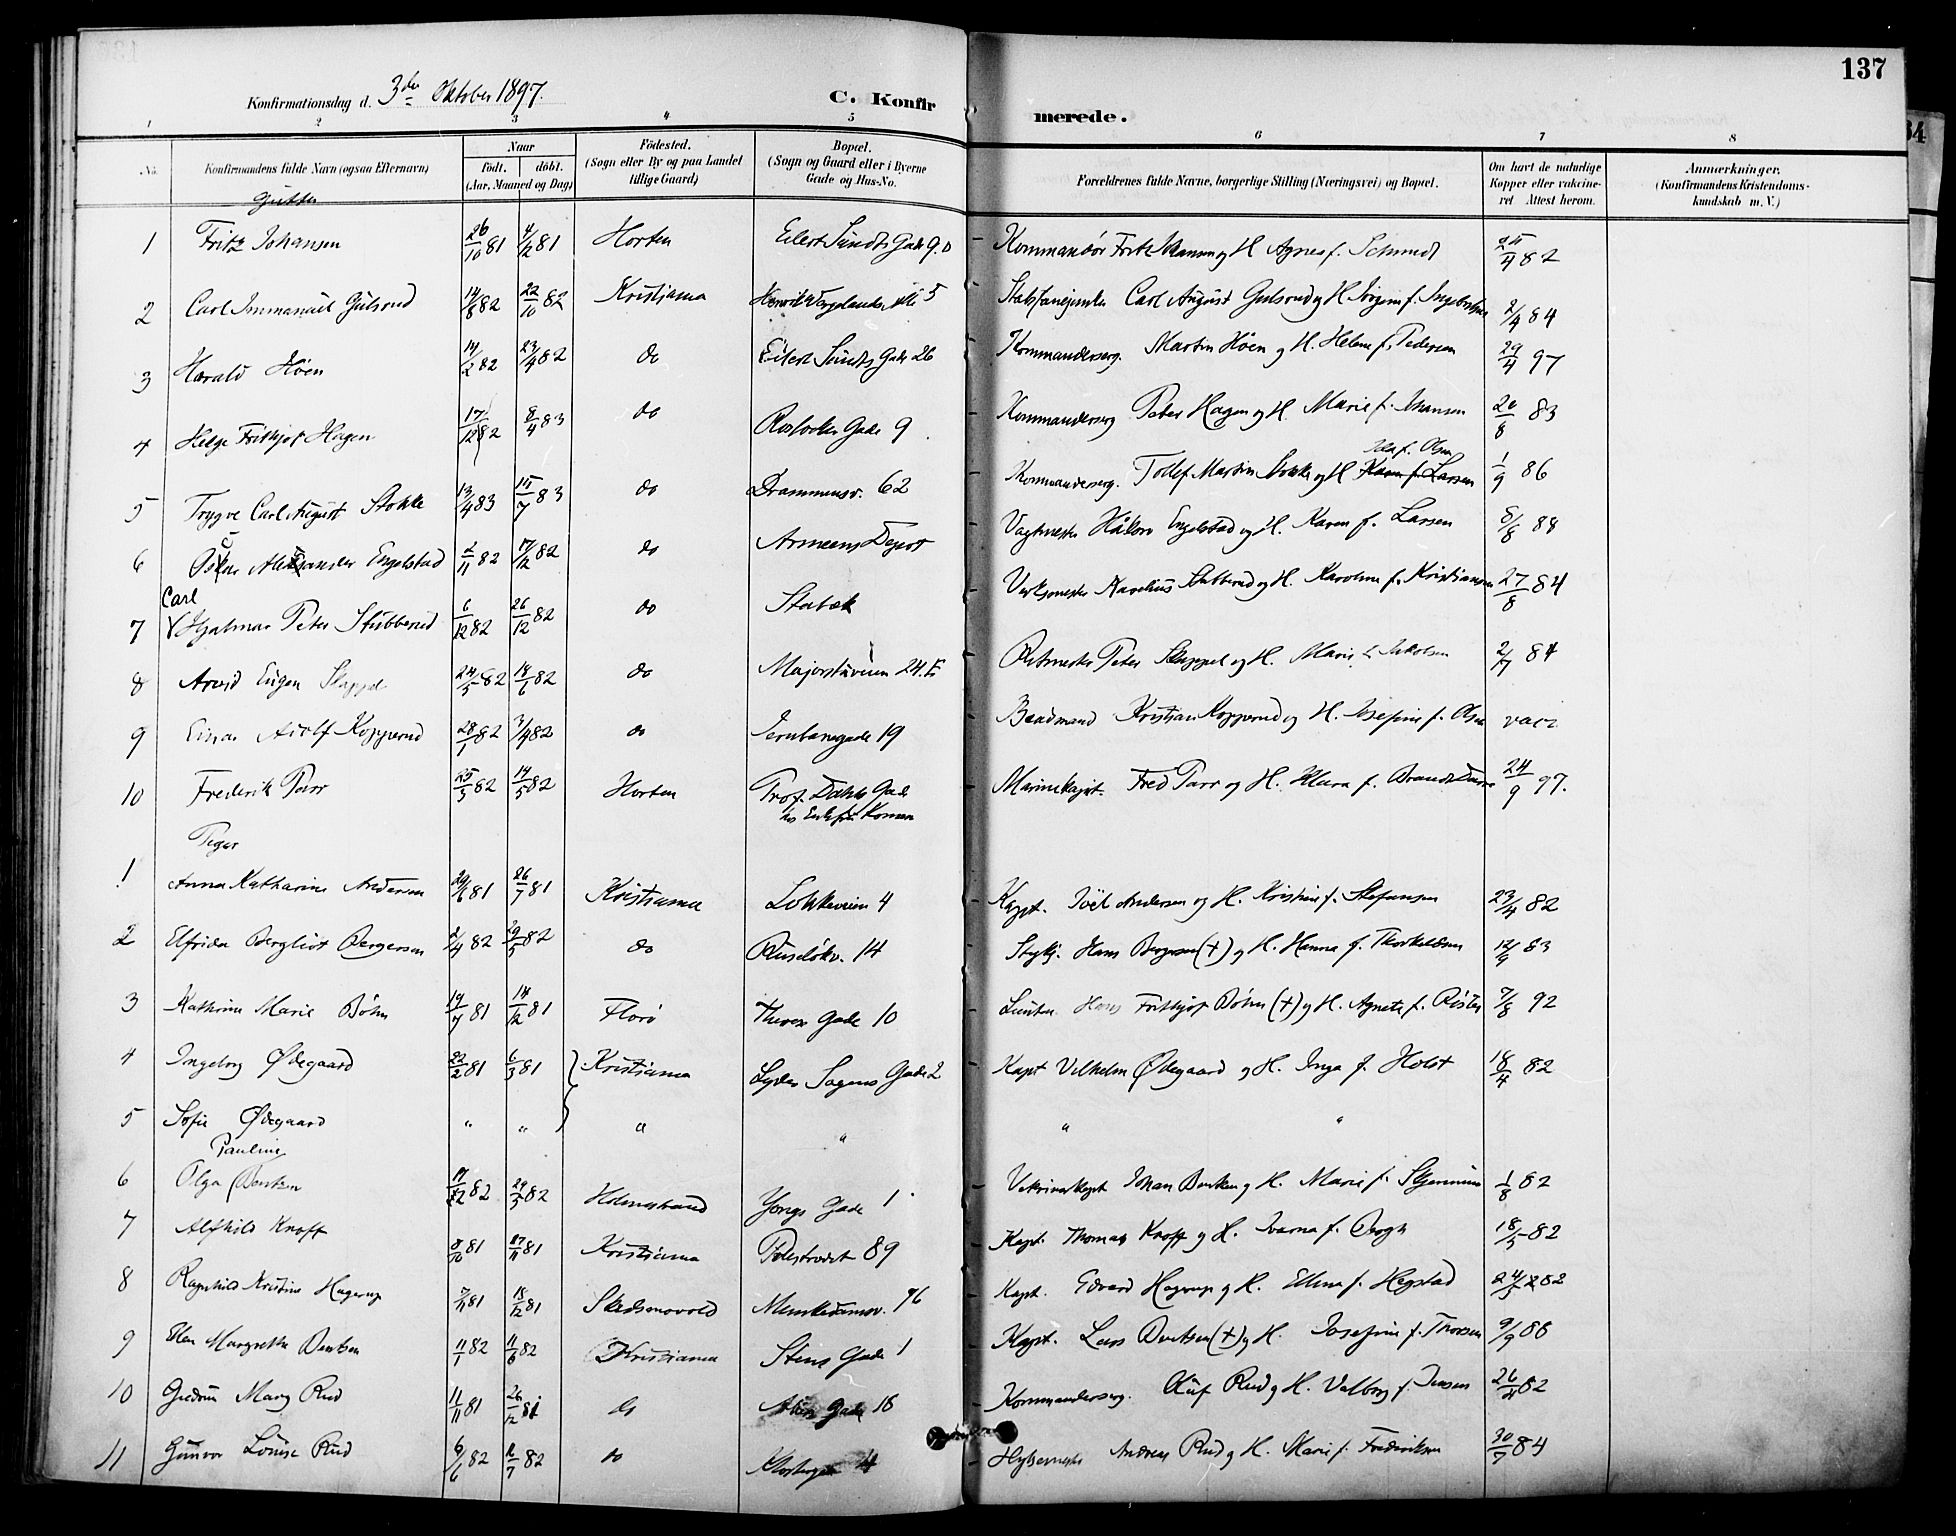 137
Konfirmationsdag d. 3die Oktober 1897.
C. Konfirmerede.
1 2 3 4 5 6 7 8
No. Konfirmandens fulde Navn (ogsaa Efternavn) Naar født. døbt. (Aar, Maaned og Dag) Fødested. (Sogn eller By og paa Landet tillige Gaard) Bopæl. (Sogn og Gaard eller i Byerne Gade og Hus-No. Forældrenes fulde Navne, borgerlige Stilling (Næringsvei) og Bopæl. Om havt de naturlige Kopper eller vakcineret Attest herom. Anmærkninger. (Konfirmandens Kristendomskundskab m. V.)
Gutter
1 Fritz Johansen 26/10 81 4/12 81 Horten Eilert Sundts Gade 9.0 Kommandør Fritz Johansen og H. Agnes f. Schmidt 25/4 82
2 Carl Immanuel Gulsrud 14/8 82 22/10 82 Kristiania 5 Carl August Gulsrud og H. f. 2/4 84
3 Harald Høen 14/2 82 23/4 82 do Eilert Sundts Gade 26 Kommanderserg. Martin Høen og H. Helene f. Pedersen 29/4 97
4 Helge Frithjof Hagen 17/12 82 8/4 83 do Gade 9 Kommanderserg Peter Hagen og H. Marie f. Johansen 20/8 83
5 Trygve Carl August Stokke 13/4 83 15/7 83 do Drammensv. 62 Kommanderserg. Tollef Martin Stokke og H. Ida f. Olsen Karen f. Larsen 1/9 86
6 Oscar Alexander Engelstad 2/11 82 17/12 82 do Armeens Depot Vagtmester Håkon Engelstad og H. Karen f. Larsen 8/8 88
7 Carl Hjalmar Peter Stubberud 6/12 82 26/12 82 do Stabæk Stubberud og H. Karoline f. Kristiansen 27/8 84
8 Arvid Eugen Skappel 24/5 82 18/6 82 do Majorstuveien 24. Ritmester Peter Skappel og H. Marie f. Jakobsen 2/7 84
9 Einar Adolf Kopperud 28/1 82 3/4 82 do Jernbanegade 19 Brandmand Kristian Kopperud og H. Josefine f. Olsen vacc.
10 Frederik Parr 25/3 82 14/5 82 Horten Prof. Dahls Gade Marinekapt. Fred Parr og H. Klara f. 24/9 97.
Piger
1 Anna Katharine Andersen 29/6 81 26/7 81 Kristiania Løkkeveien 4 Kapt. Joël Andersen og H. Kristine f. Stefansen 23/4 82
2 Elfrida Bergliot Bergersen 2/4 82 29/5 82 do Ruseløkv. 14 Hans Bergersen (+) og H. Hanna f. Thorkeldsen 12/9 83
3 Kathrine Marie Bøhm 19/7 81 18/12 81 Florø Gade 10 Hans Frithjof Bøhm (+) og H. Agnete f. 7/8 92
4 Ingeborg Ødegaard 22/2 81 6/3 81 Kristiania Lyder Sagens Gade 2 Kapt Vilhelm Ødegaard og H. Inga f. Holst 18/4 82
5 Sofie Ødegaard " " " " " "
6 Olga Pauline Bentzen 29/3 82 Holmestrand Yongs Gade 1 Johan Bentzen og H. Marie f. 1/8 82
7 Alfhild Knoff 8/10 81 27/11 81 Kristiania Pilestrædet 89 Kapt. Thomas Knoff og H. f. Bergh 18/5 82
8 Ragnhild Kristine Hagerup 7/11 81 18/12 81 Skedsmovold Munkedamsv. Kapt. Edvard Hagerup og H. Ellen f. Hegstad
9 Ellen Margrethe Berntsen 11/1 82 11/6 82 Kristiania Stens Gade 1 Kapt. Lars Berntsen (+) og H. Josefine f. Thorsen 9/9 88
10 Gudrun Mary Rud 11/11 81 26/12 81 do Gade 18 Kommanderserg. Oluf Rud og H. Valborg f. Jensen
11 Gunvor Louise Rud 6/6 82 do 4 Andreas Rud og H. Marie f. Frederiksen 30/7 84